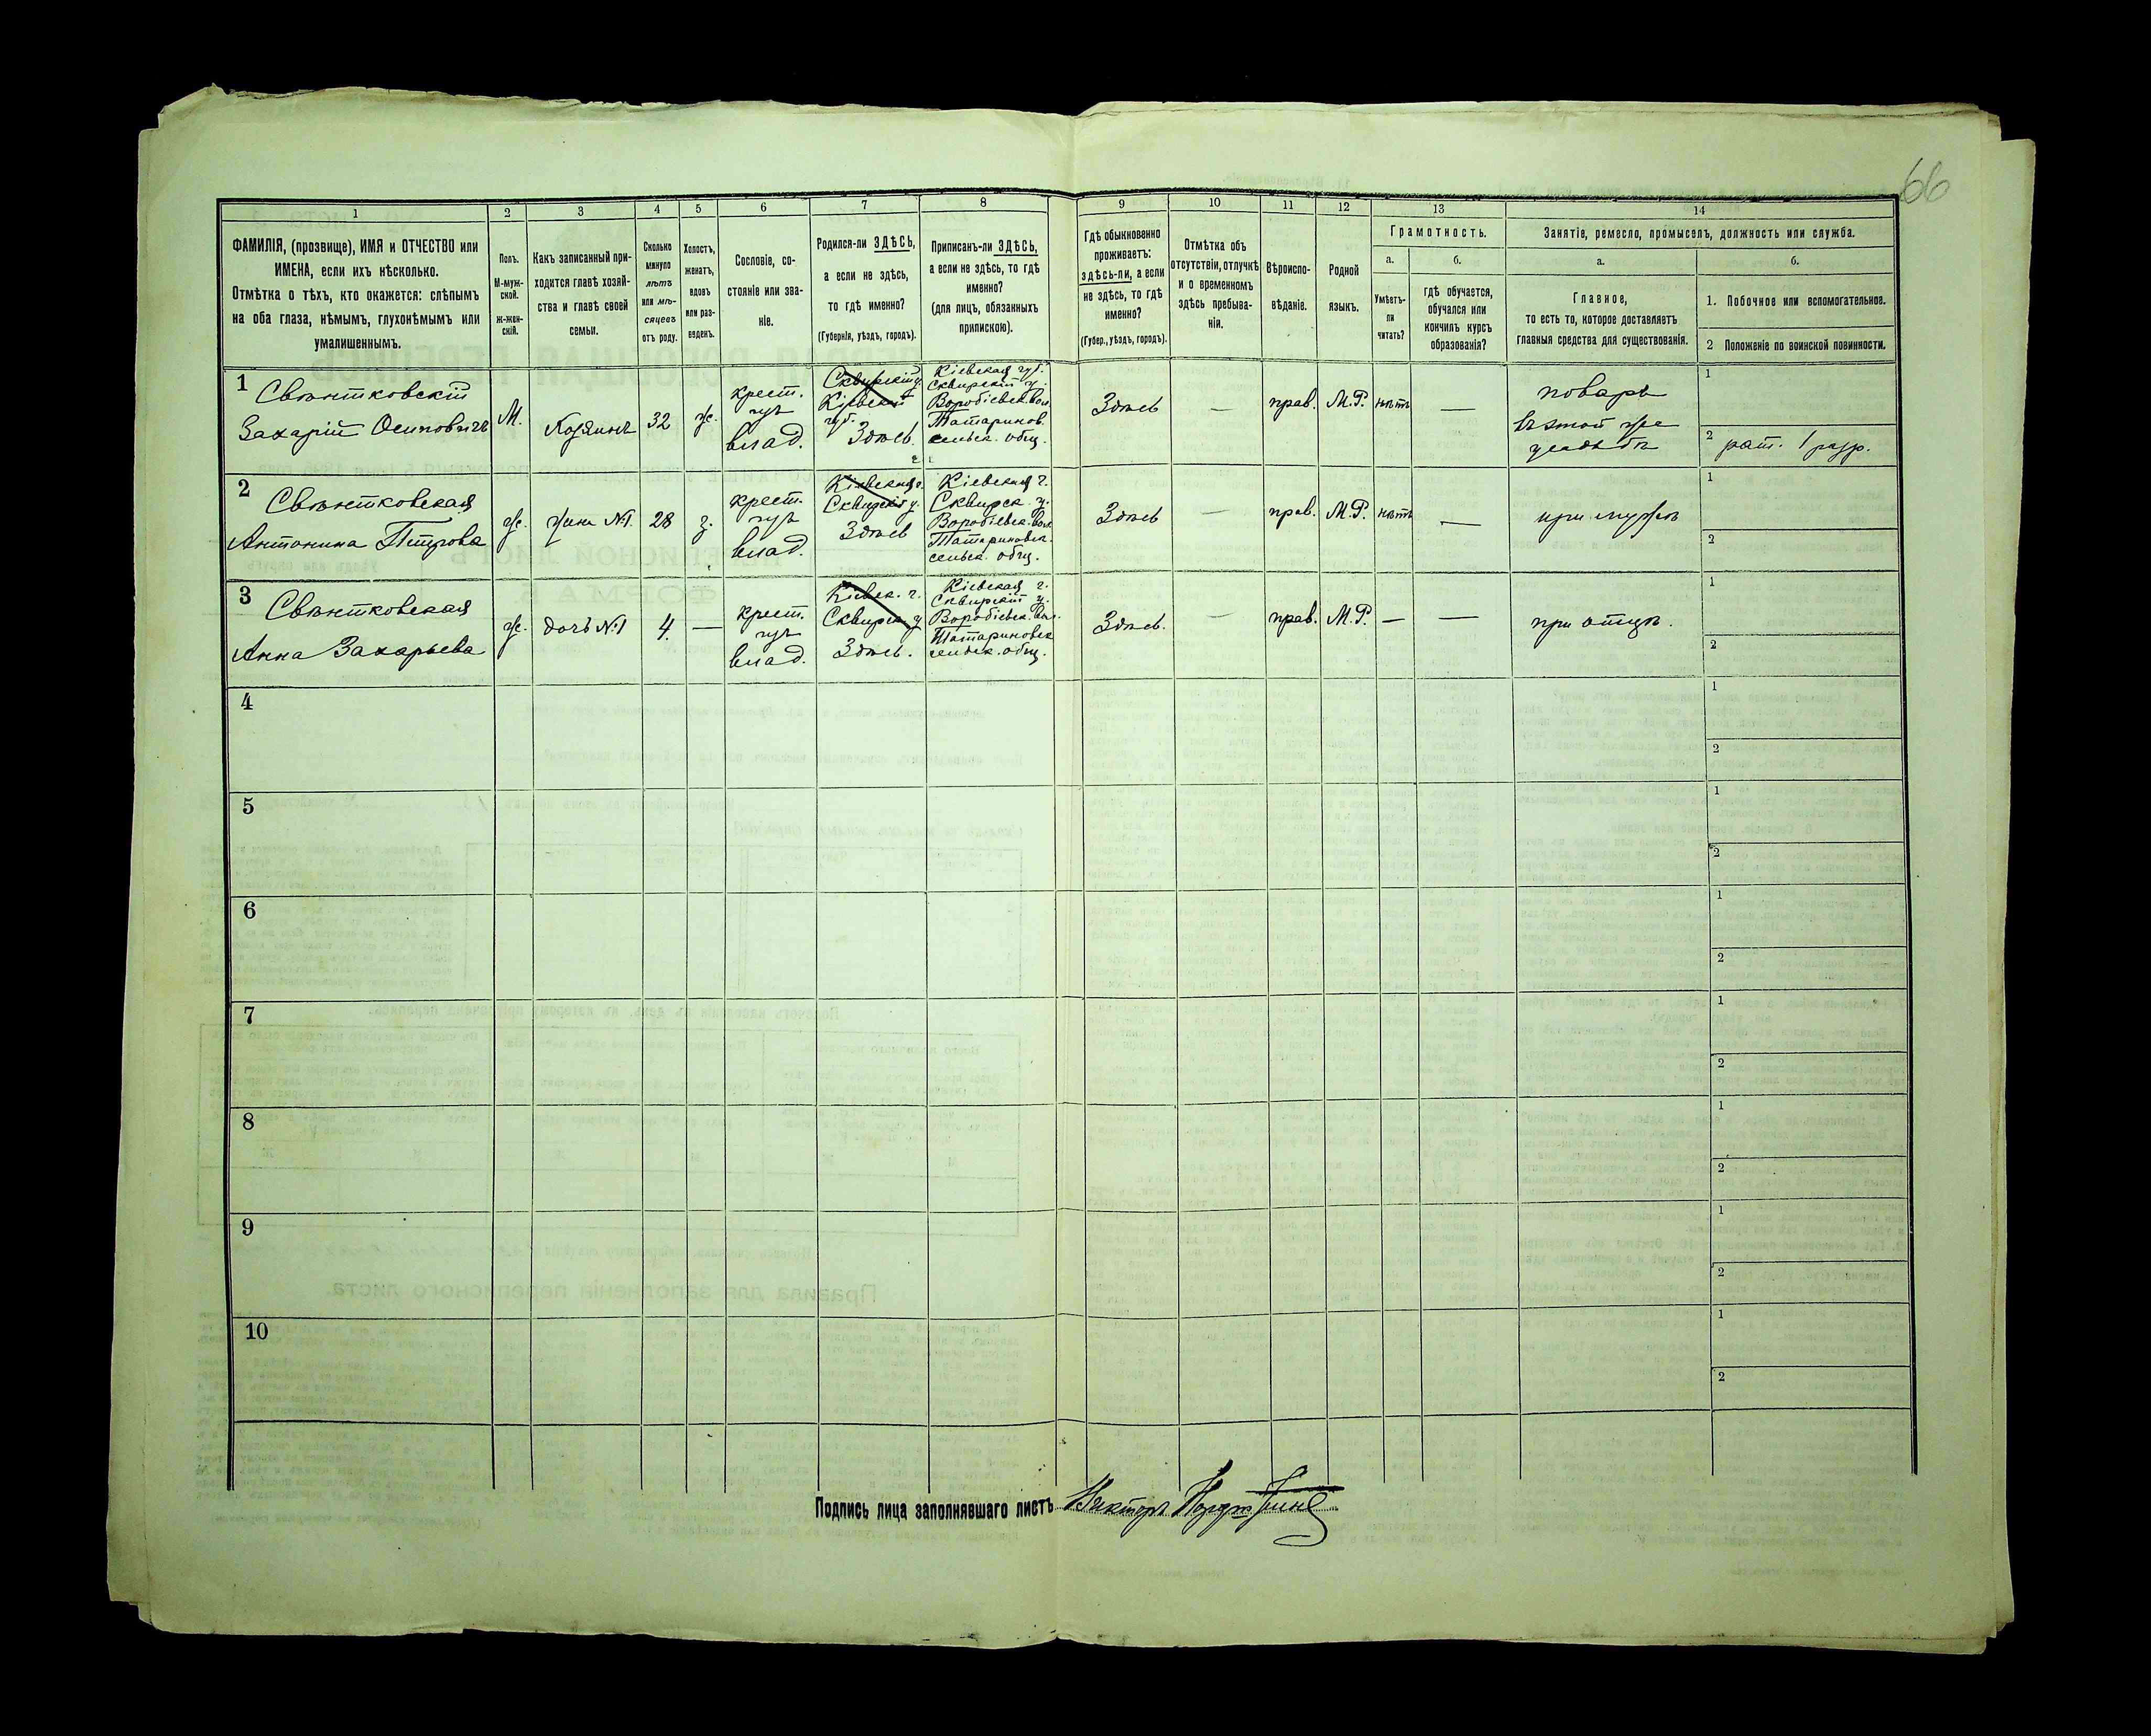 66
1
2
3
4
5
6
7
8
9
10
11
12
13
14
ФАМИЛІЯ, (прозвище), ИМЯ и ОТЧЕСТВО или
ИМЕНА, если ихъ нѣсколько.
Отмѣтка о тѣхъ, кто окажется: слѣпымъ
на оба глаза, нѣмымъ, глухонѣмымъ или
умалишеннымъ.
Полъ.
М-муж-
ской.
ж-жен-
скій.
Какъ записанный при-
ходится главѣ хозяй-
ства и главѣ своей
семьи.
Сколько
минуло
лѣтъ
или мѣ-
сяцевъ
отъ роду.
Холостъ,
женатъ,
вдовъ
или раз-
веденъ.
Сословіе, со-
стояніе или зва-
ніе.
Родился-ли ЗДѢСЬ,
а если не здѣсь,
то гдѣ именно?
(Губернія, уѣздъ, городъ).
Приписанъ-ли ЗДѢСЬ,
а если не здѣсь, то гдѣ
именно?
(для лицъ, обязанныхъ
припискою).
Гдѣ обыкновенно
проживаетъ:
здѣсь-ли, а если
не здѣсь, то гдѣ
именно?
(Губер., уѣздъ, городъ).
Отмѣтка объ
отсутствіи, отлучкѣ
и о временномъ
здѣсь пребыва-
ніи.
Вѣроиспо-
вѣданіе.
Родной
языкъ.
Грамотность.
а.
Умѣетъ-
ли
читать?
б.
гдѣ обучается,
обучался или
кончилъ курсъ
образованія?
Занятіе, ремесло, промыселъ, должность или служба.
а.
Главное,
то есть то, которое доставляетъ
главныя средства для существованія.
б.
1. Побочное или вспомогательное.
2 Положеніе по воинской повинности.
1
Свѣнтковскій
Захарій Осиповичъ
М.
Хозяинъ
32
ж.
крест.
изъ
влад.
Сквирскій у.
Кіевской
губ.
Здѣсь.
Кіевская губ.
Сквирскій у.
Воробіевск. вол.
Татаринов.
сельск. общ.
Здѣсь
—
прав.
М.Р.
нѣтъ
—
поваръ
въ этой же
усадьбѣ
1
2 рат. 1 разр.
2
Свѣнтковская
Антонина Петрова
ж.
жена №1.
28
з.
крест.
изъ
влад.
Кіевская г.
Сквирскій у.
Здѣсь
Кіевская г.
Сквирск. у.
Воробіевск. вол.
Татариновск.
сельск. общ.
Здѣсь
—
прав.
М.Р.
нѣтъ
—
при мужѣ
1
2
3
Свѣнтковская
Анна Захарьева
ж.
дочь №1
4.
—
крест.
изъ
влад.
Кіевск. г.
Сквирск. у.
Здѣсь.
Кіевская г.
Сквирскій у.
Воробіевск. вол.
Татариновск.
сельск. общ.
Здѣсь.
—
прав.
М.Р.
—
—
при отцѣ.
1
2
4
1
2
5
1
2
6
1
2
7
1
2
8
1
2
9
1
2
10
1
2
Подпись лица заполнявшаго листъ Викторъ